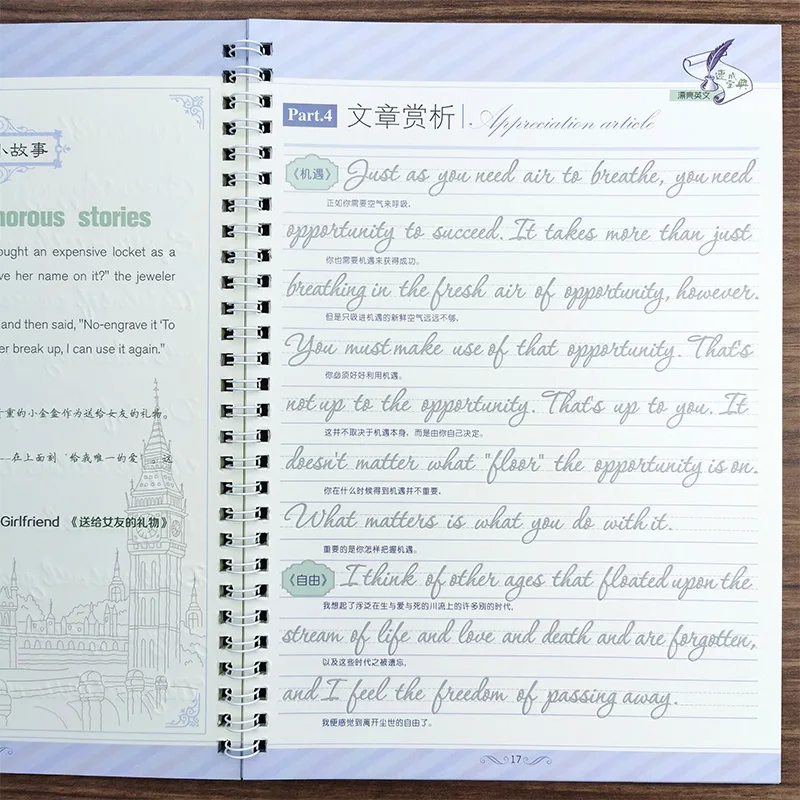 小故事
norous stories
ought an expensive locket as a
ve her name on it?" the jeweler
and then said, "No-engrave it 'To
er break up, I can use it again."
重的小金盒作为送给女友的礼物。
在上面刻‘给我唯一的爱’这
Girlfriend 《送给女友的礼物》
速成宝典
漂亮英文
Part.4 文章赏析 Appreciation article
《机遇》 Just as you need air to breathe, you need
正如你需要空气来呼吸,
opportunity to succeed. It takes more than just
你也需要机遇来获得成功。
breathing in the fresh air of opportunity, however.
但是只吸进机遇的新鲜空气远远不够,
You must make use of that opportunity. That's
你必须好好利用机遇。
not up to the opportunity. That's up to you. It
这并不取决于机遇本身，而是由你自己决定。
doesn't matter what "floor" the opportunity is on.
你在什么时候得到机遇并不重要,
What matters is what you do with it.
重要的是你怎样把握机遇。
《自由》 I think of other ages that floated upon the
我想起了浮泛在生与爱与死的川流上的许多别的时代,
stream of life and love and death and are forgotten,
以及这些时代之被遗忘,
and I feel the freedom of passing away.
我便感觉到离开尘世的自由了。
17